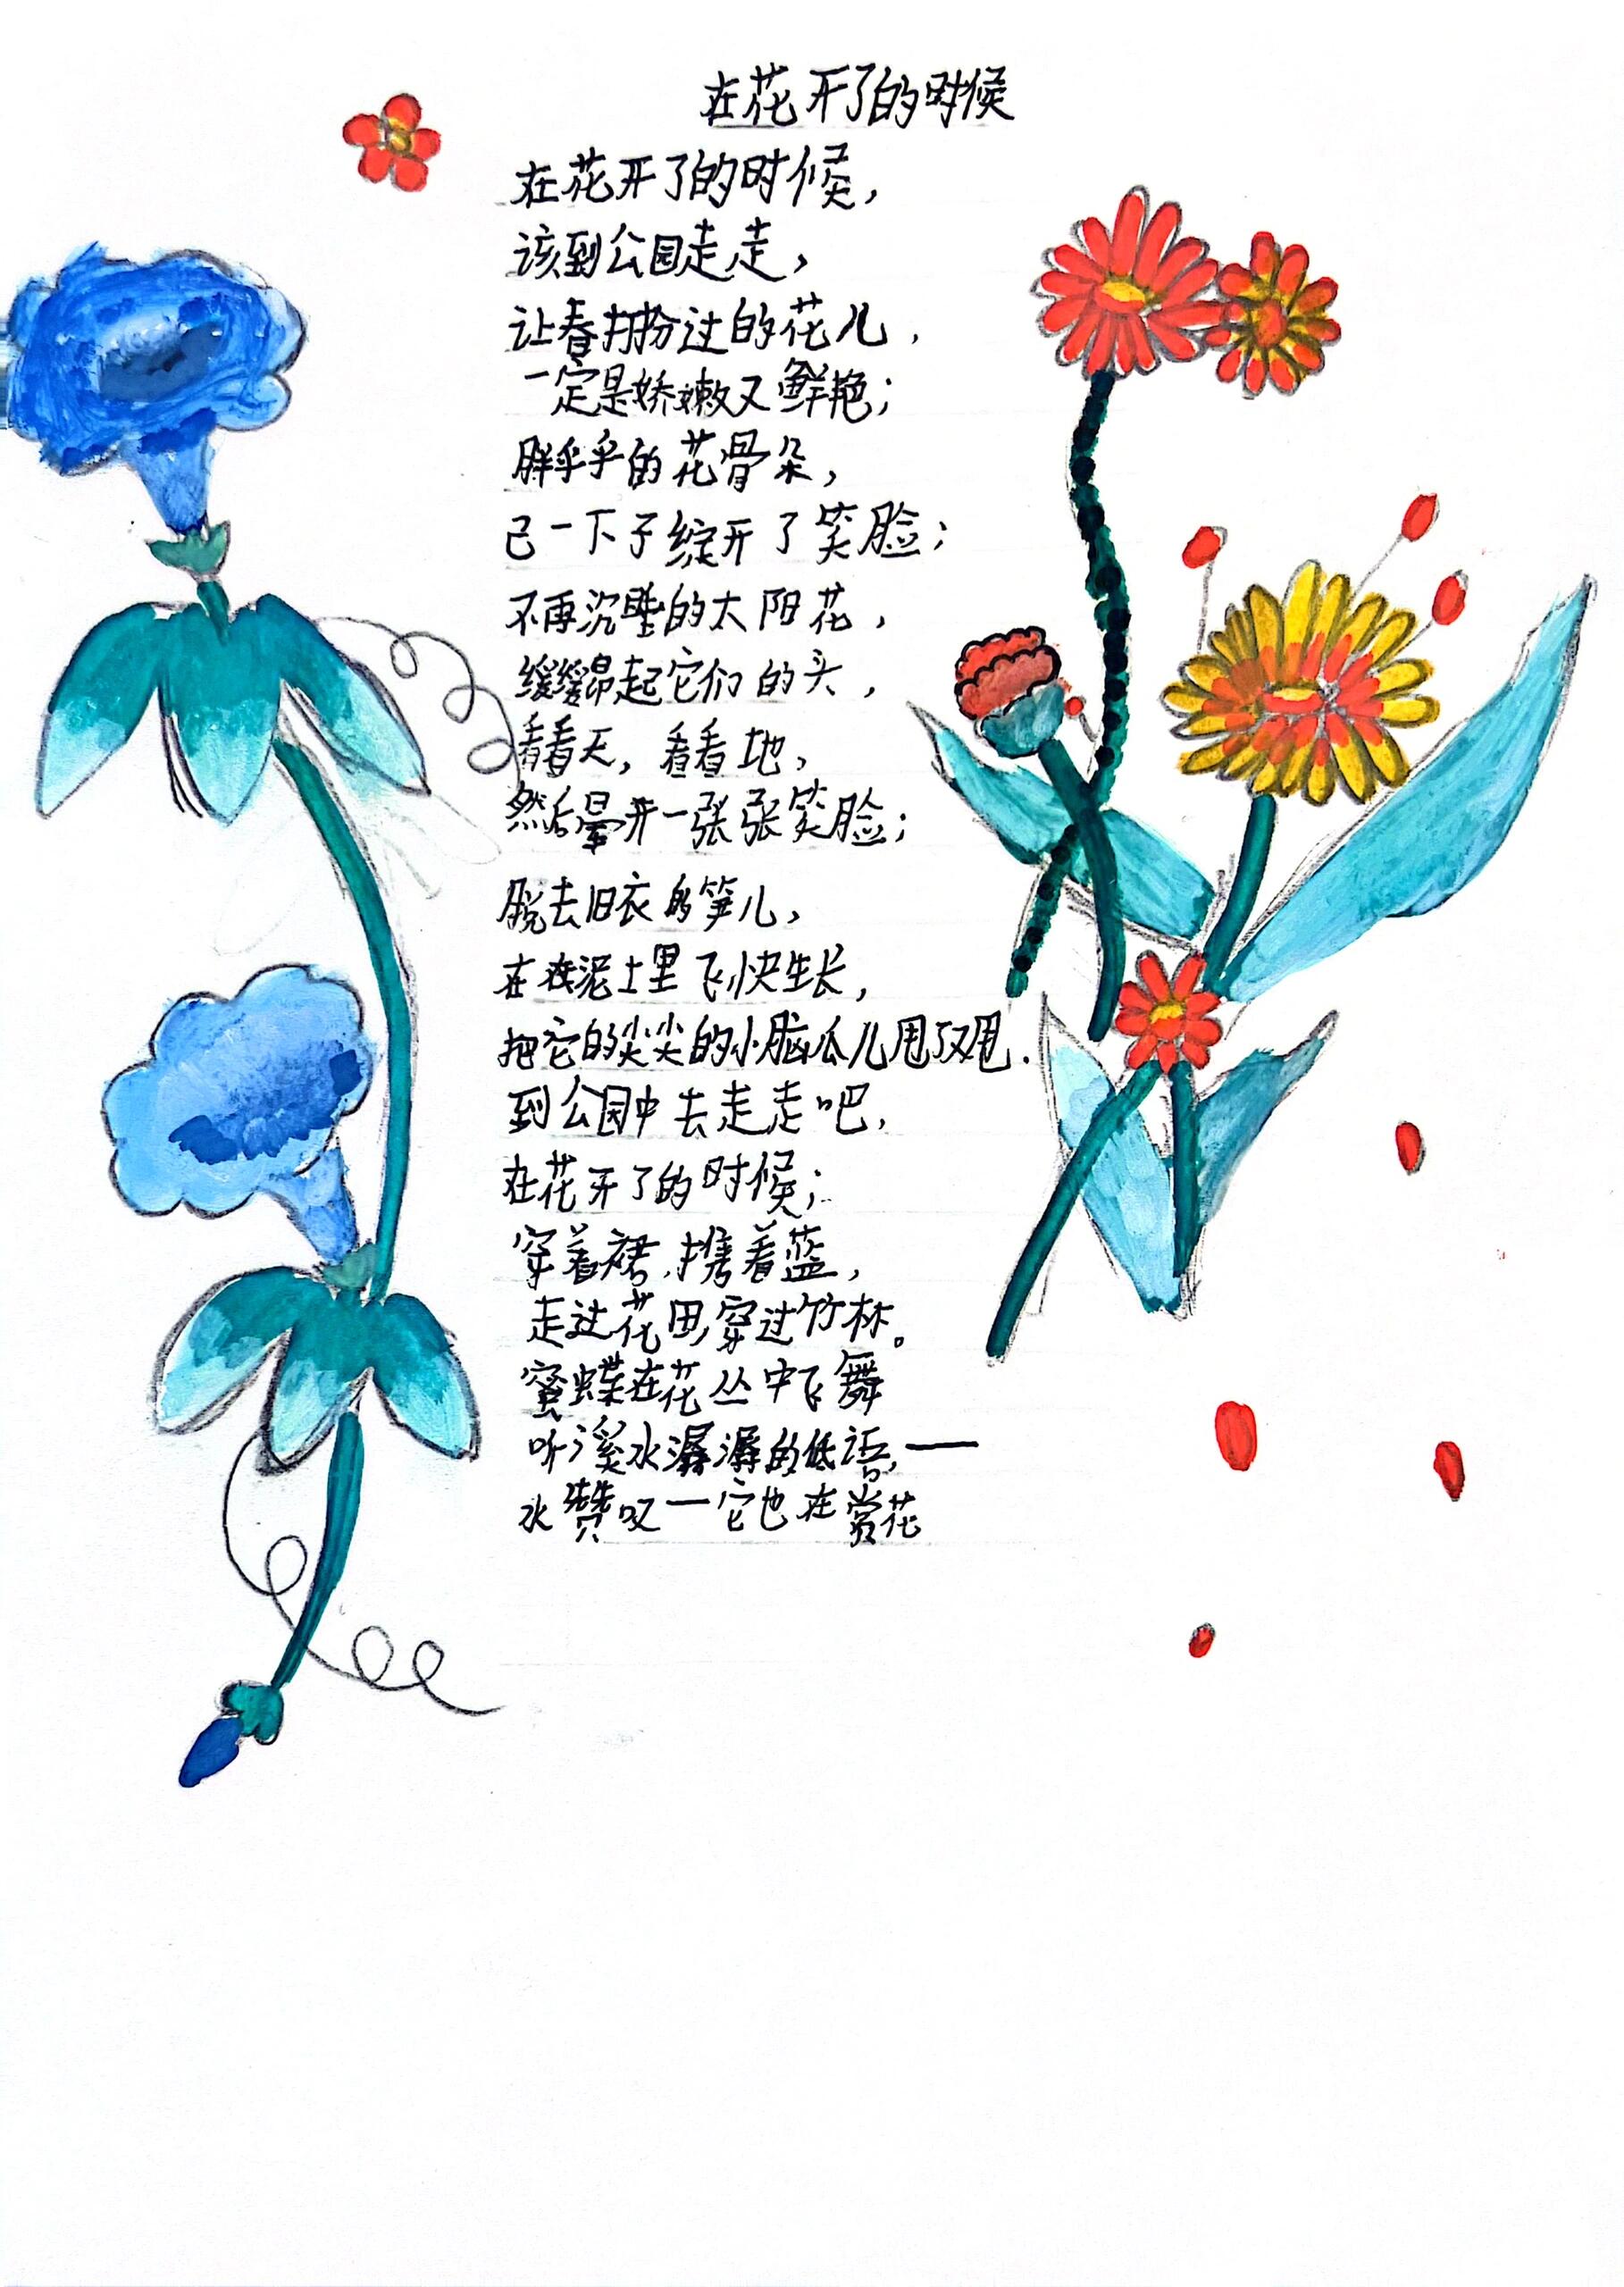 在花开了的时候
在花开了的时候，
该到公园走走，
让春打扮过的花儿，
一定是娇嫩又鲜艳；
胖乎乎的花骨朵，
已一下子绽开了笑脸；
不再沉睡的太阳花，
缓缓昂起它们的头，
看看天，看看地，
然后晕开一张张笑脸；
脱去旧衣的笋儿，
在泥土里飞快生长，
把它的尖尖的小脑瓜儿甩了又甩．
到公园中去走走吧，
在花开了的时候；
穿着裙，携着蓝，
走过花田，穿过竹林。
蜜蝶在花丛中飞舞
听溪水潺潺的低语，——
水赞叹一它也在赏花